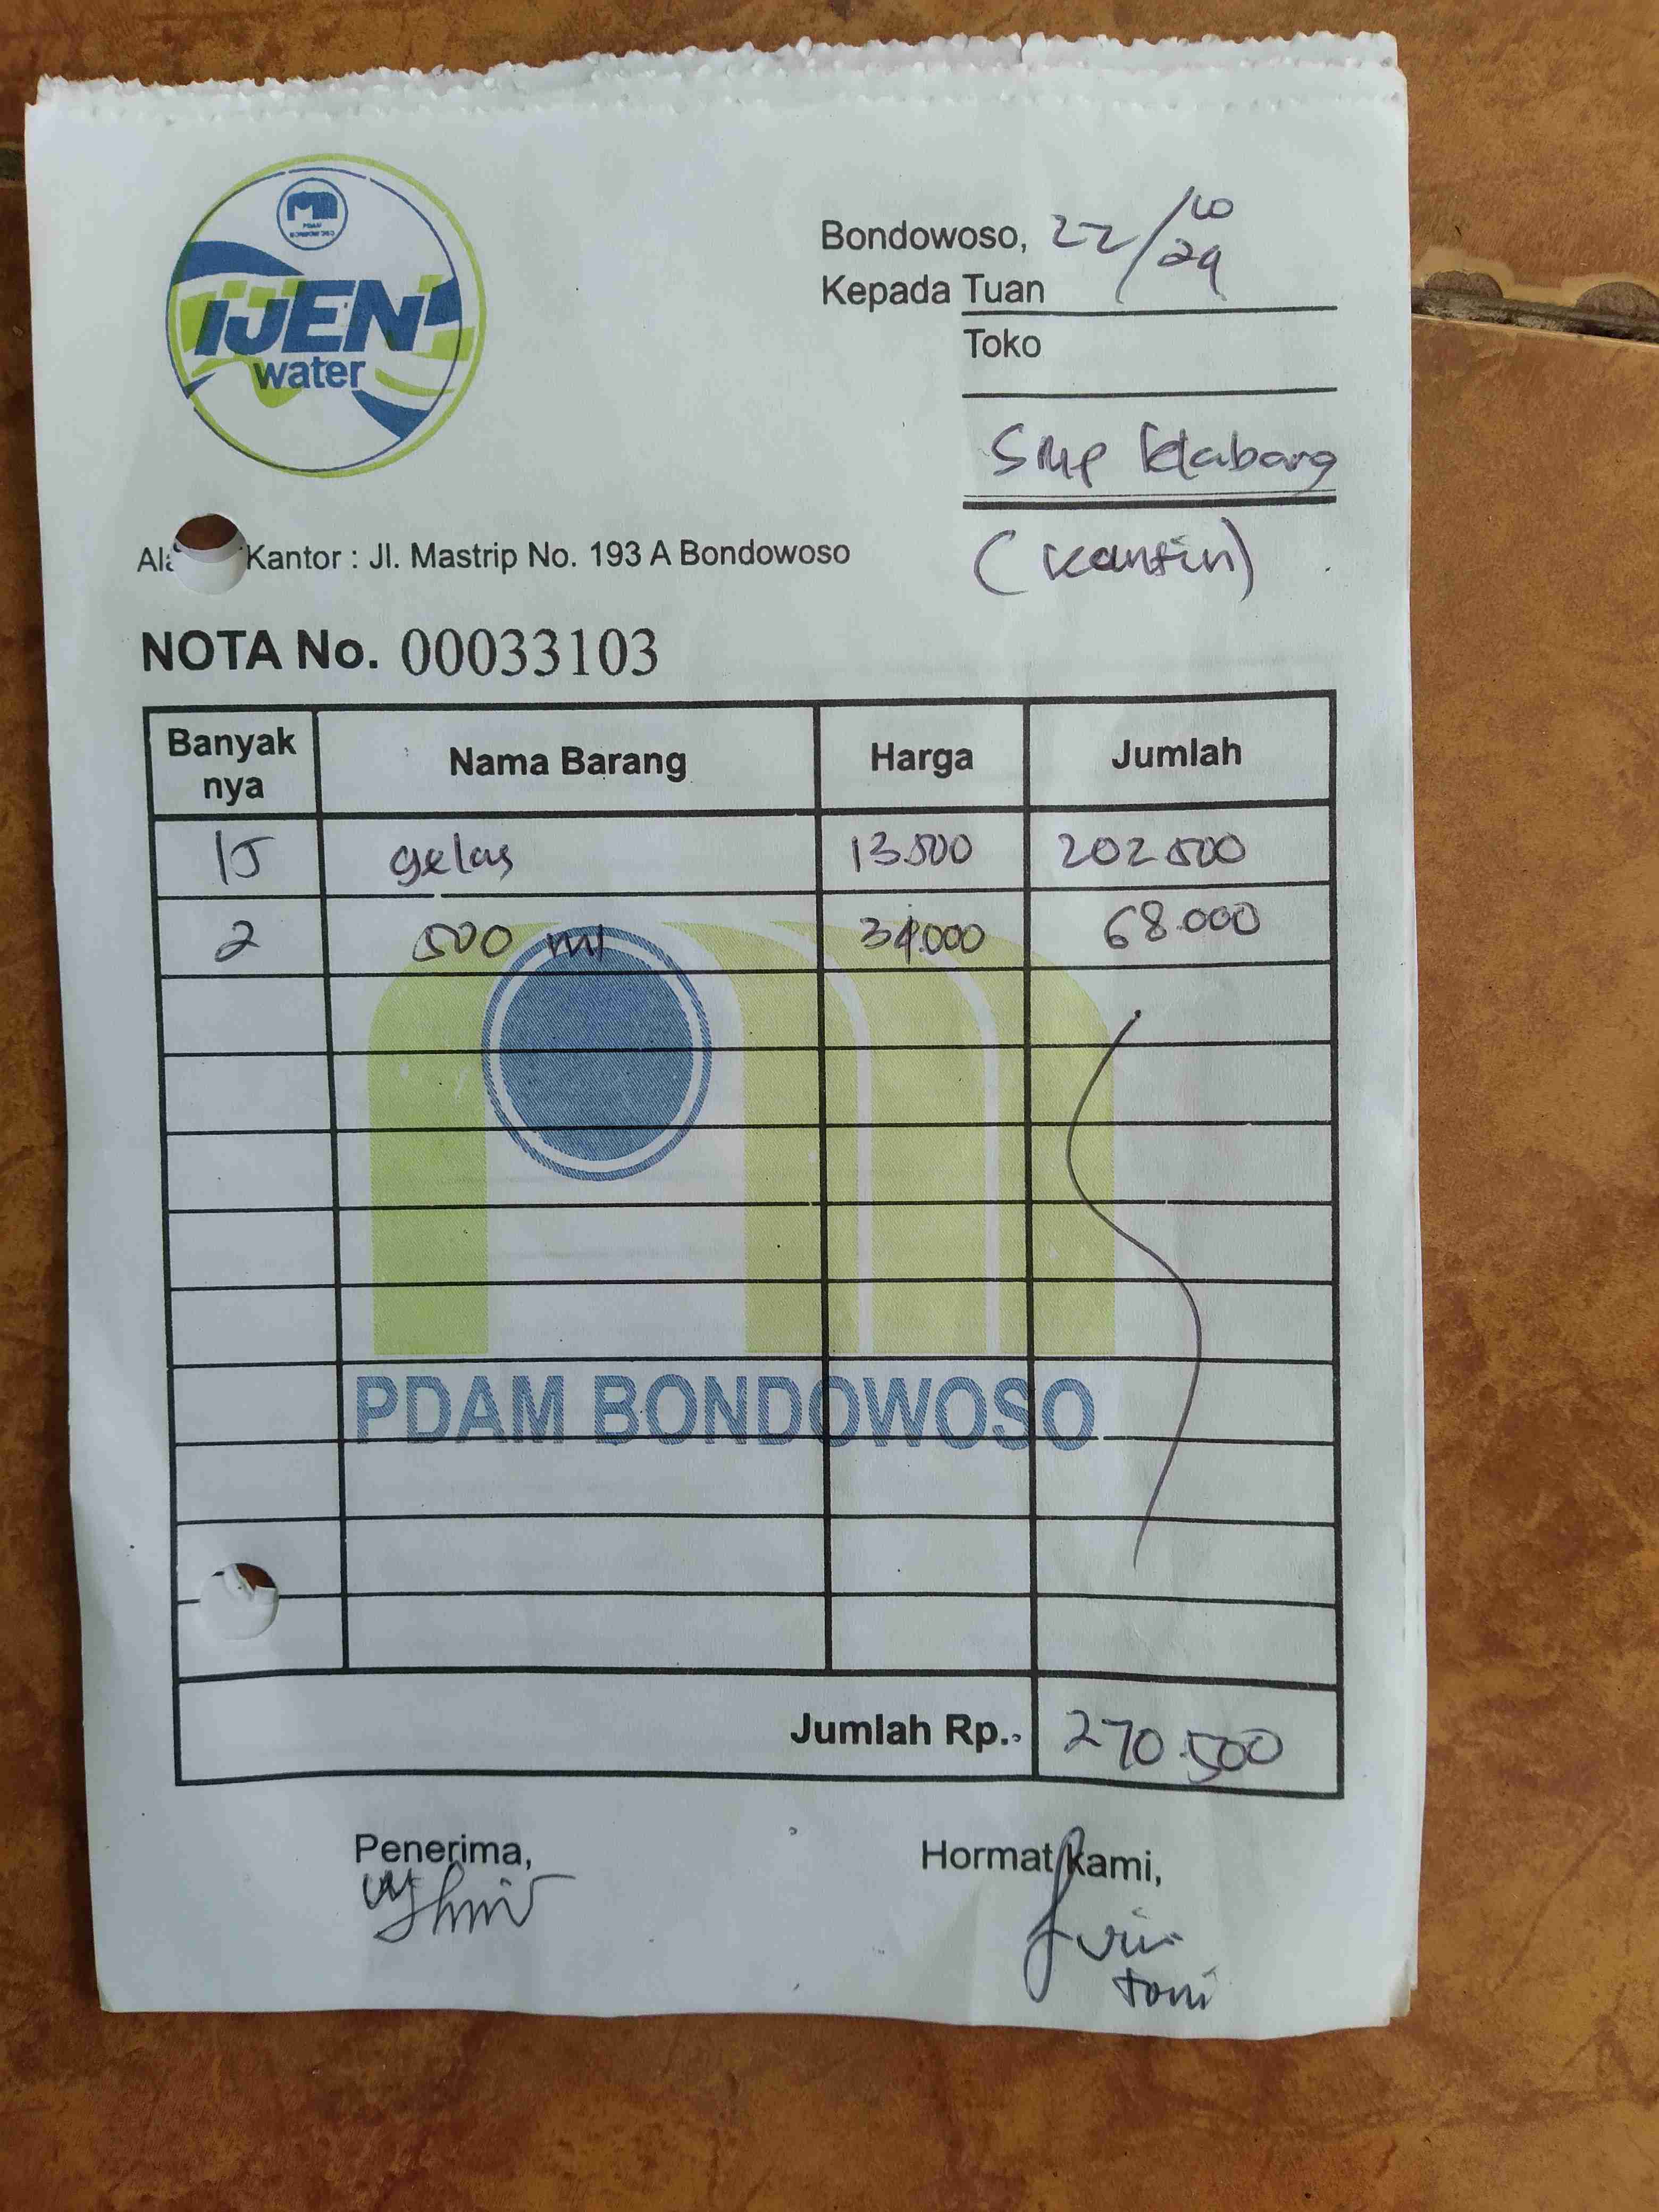 IJEN
water
Bondowoso, 22/10 24
Kepada Tuan
Toko
SMP Klabang
(Kantin)
Kantor : Jl. Mastrip No. 193 A Bondowoso
NOTA No. 00033103
Banyak nya Nama Barang Harga Jumlah
15 gelas 13.500 202.500
2 500 ml 34.000 68.000
PDAM BONDOWOSO
Jumlah Rp. 270.500
Penerima, Hormat kami,
toni